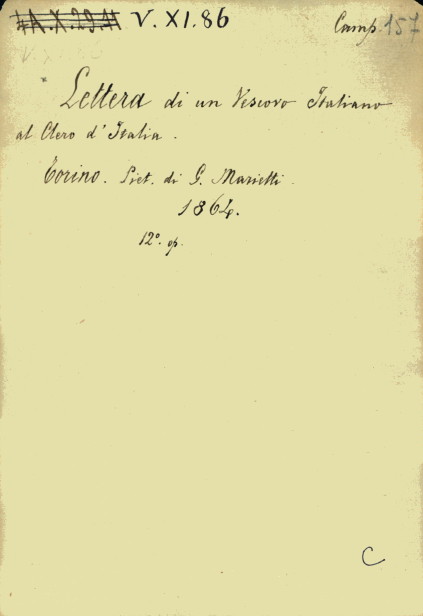 A.X.29.11 V. XI. 86 Camp. 157
* Lettera di un Vescovo Italiano
al Clero d'Italia.
Torino. Piet. di G. Marietti.
1864.
12º. op.
C